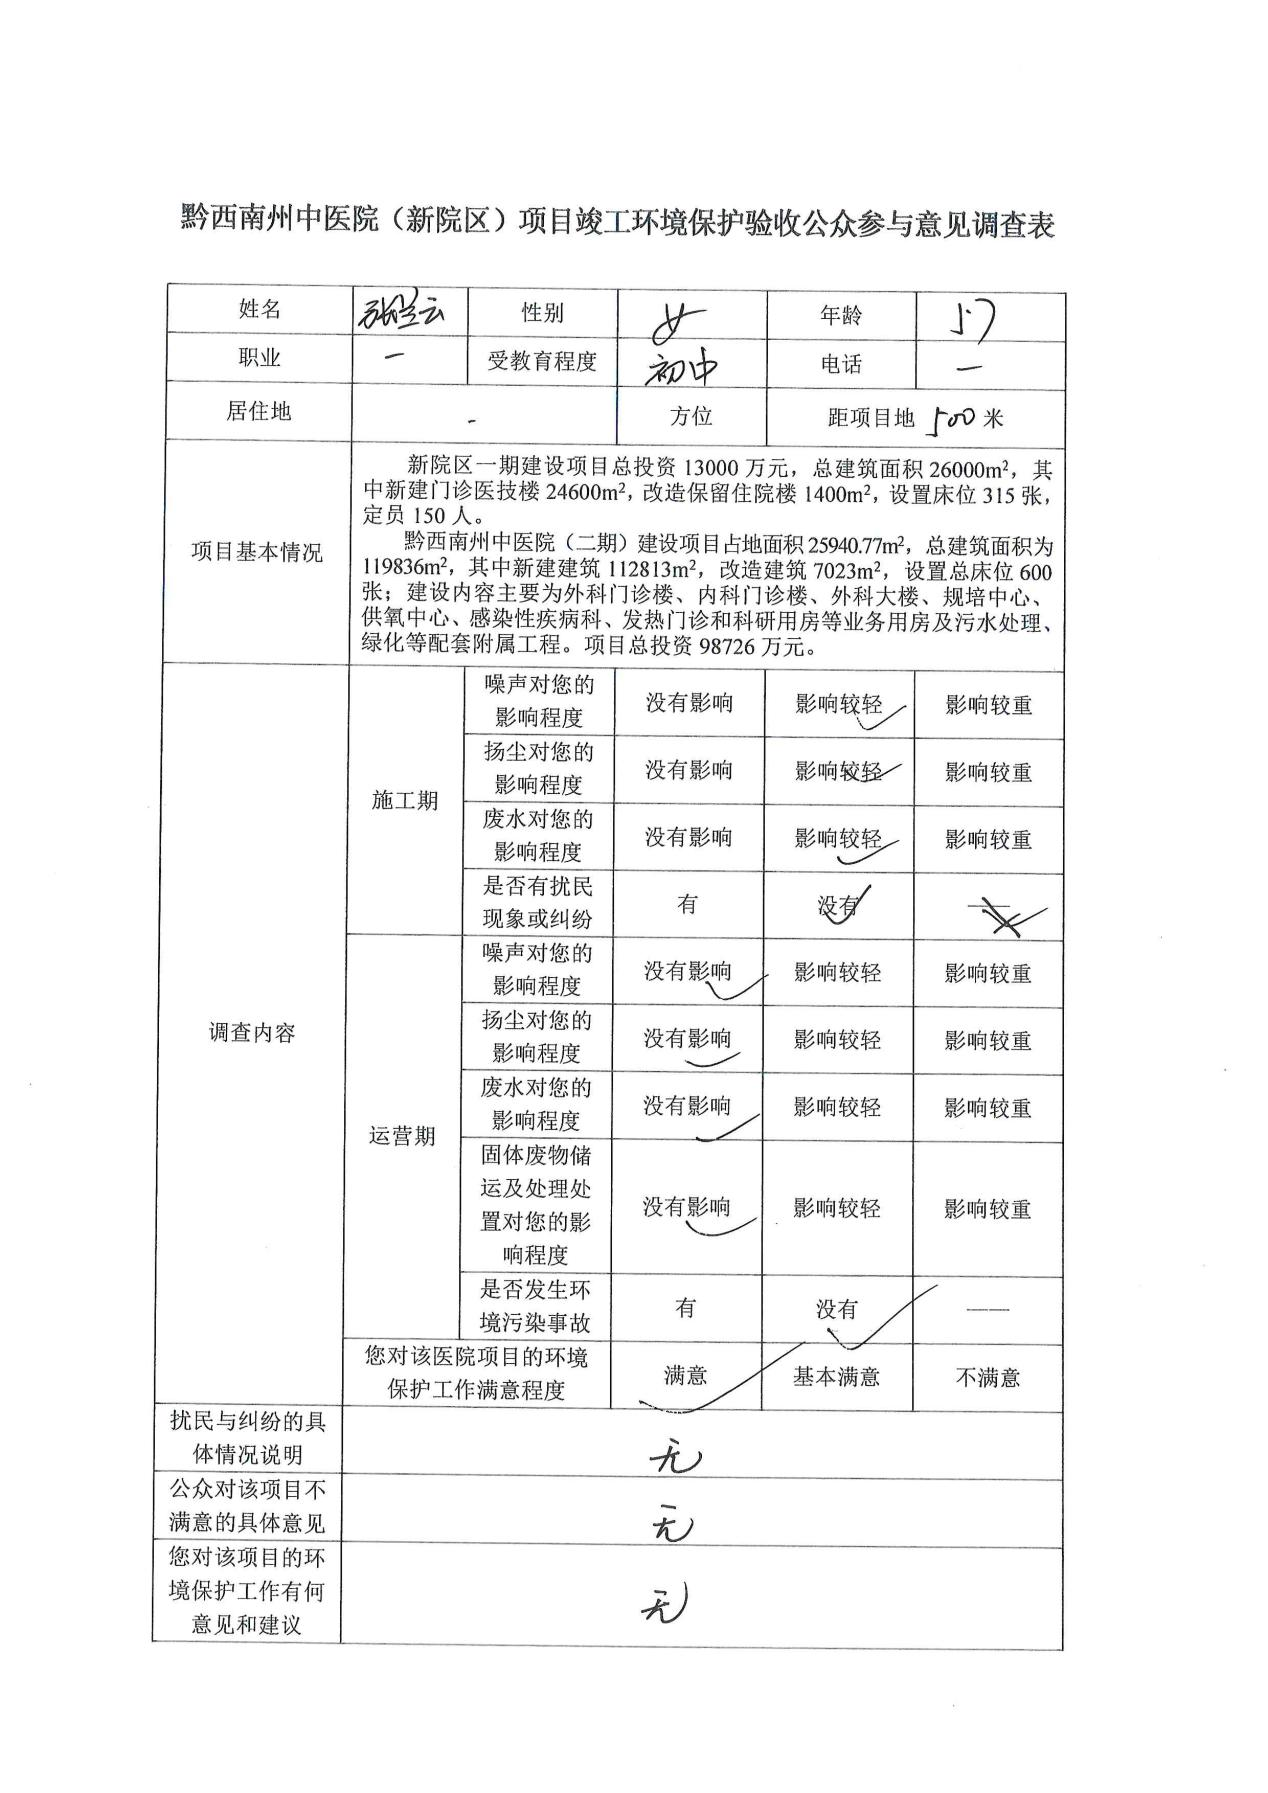 黔西南州中医院（新院区）项目竣工环境保护验收公众参与意见调查表
姓名 张兰云 性别 女 年龄 57
职业 一 受教育程度 初中 电话 一
居住地 - 方位 距项目地 500 米
项目基本情况
新院区一期建设项目总投资 13000 万元，总建筑面积 26000m²，其
中新建门诊医技楼 24600m²，改造保留住院楼 1400m²，设置床位 315 张，
定员 150 人。
黔西南州中医院（二期）建设项目占地面积 25940.77m²，总建筑面积为
119836m²，其中新建建筑 112813m²，改造建筑 7023m²，设置总床位 600
张；建设内容主要为外科门诊楼、内科门诊楼、外科大楼、规培中心、
供氧中心、感染性疾病科、发热门诊和科研用房等业务用房及污水处理、
绿化等配套附属工程。项目总投资 98726 万元。
调查内容
施工期
噪声对您的
影响程度
没有影响 影响较轻 ✓ 影响较重
扬尘对您的
影响程度
没有影响 影响较轻 ✓ 影响较重
废水对您的
影响程度
没有影响 影响较轻 ✓ 影响较重
是否有扰民
现象或纠纷
有 没有 ✓ ——
运营期
噪声对您的
影响程度
没有影响 ✓ 影响较轻 影响较重
扬尘对您的
影响程度
没有影响 ✓ 影响较轻 影响较重
废水对您的
影响程度
没有影响 ✓ 影响较轻 影响较重
固体废物储
运及处理处
置对您的影
响程度
没有影响 ✓ 影响较轻 影响较重
是否发生环
境污染事故
有 没有 ✓ ——
您对该医院项目的环境
保护工作满意程度
满意 ✓ 基本满意 不满意
扰民与纠纷的具
体情况说明
无
公众对该项目不
满意的具体意见
无
您对该项目的环
境保护工作有何
意见和建议
无